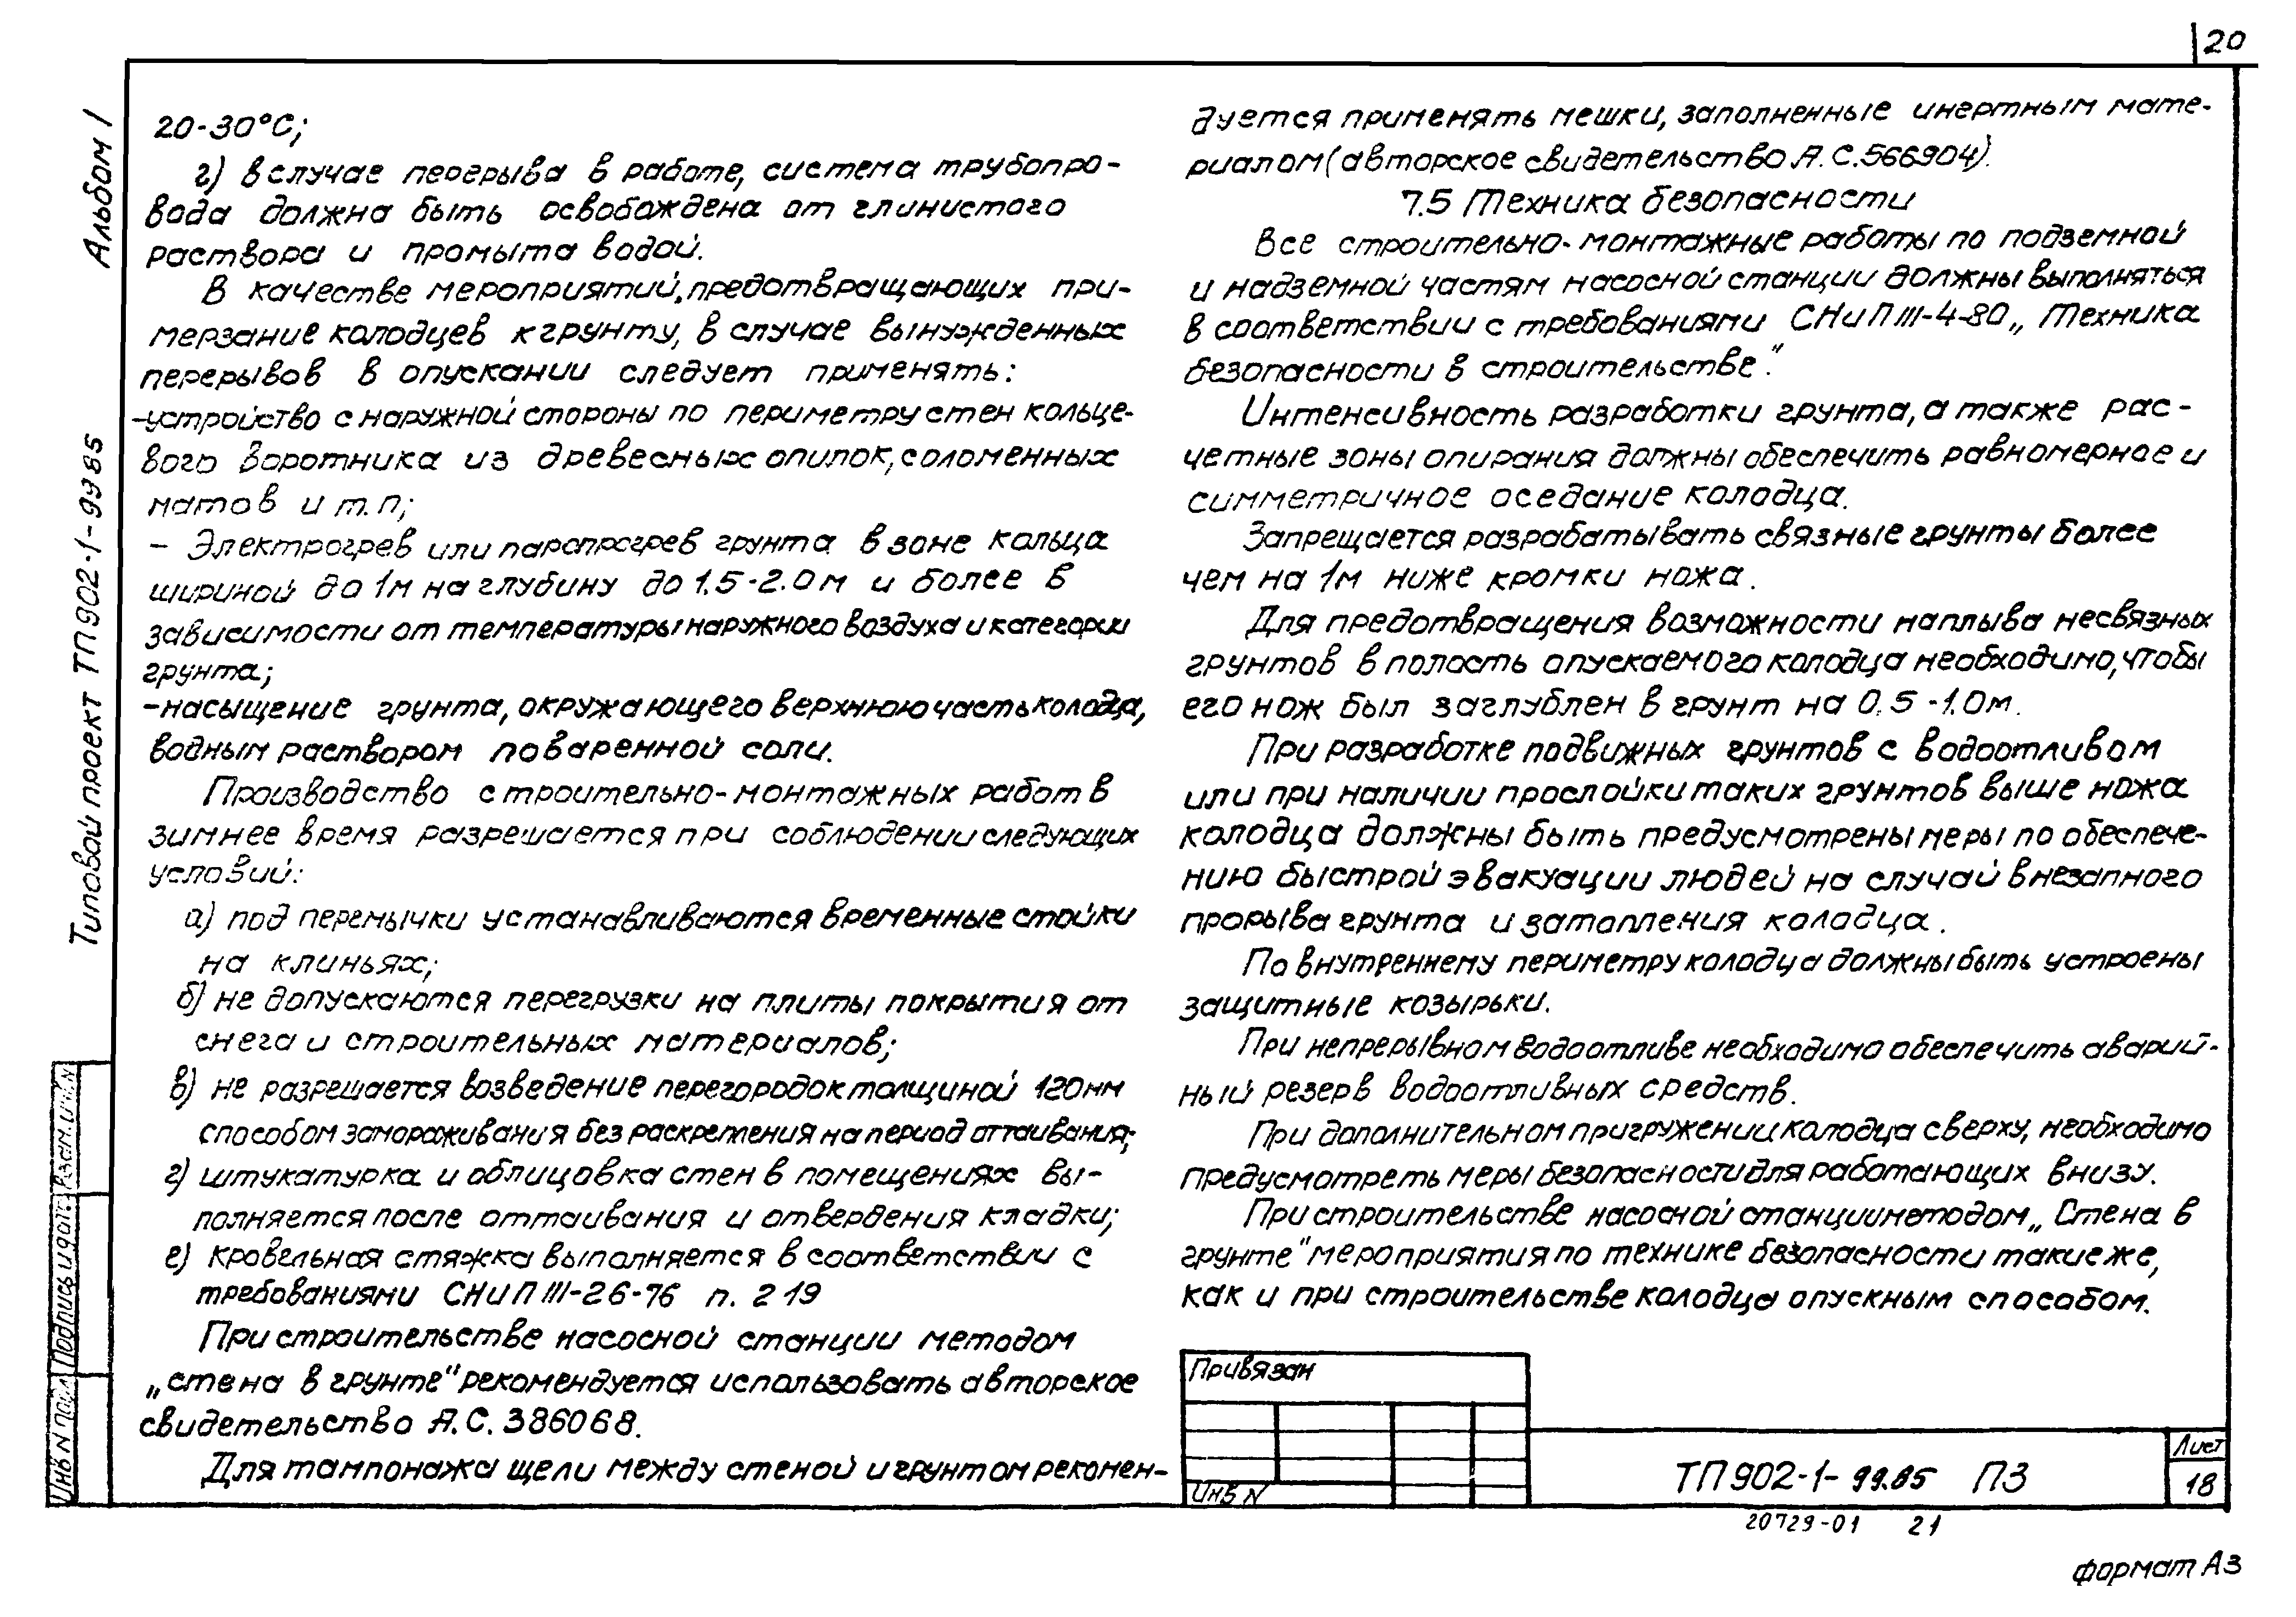 20
Альбом 1
Типовой проект ТП 902-1-99 85
20-30°С;
г) в случае перерыва в работе, система трубопро-
вода должна быть освобождена от глинистого
раствора и промыта водой.
В качестве мероприятий, предотвращающих при-
мерзание колодцев к грунту, в случае вынужденных
перерывов в опускании следует применять:
-устройство с наружной стороны по периметру стен кольце-
вого воротника из древесных опилок, соломенных
матов и т.п;
- Электрогрев или паропрогрев грунта в зоне кольца
шириной до 1м на глубину до 1.5-2.0м и более в
зависимости от температуры наружного воздуха и категории
грунта;
-насыщение грунта, окружающего верхнюю часть колодца,
водным раствором поваренной соли.
Производство строительно-монтажных работ в
зимнее время разрешается при соблюдении следующих
условий:
а) под перемычки устанавливаются временные стойки
на клиньях;
б) не допускаются перегрузки на плиты покрытия от
снега и строительных материалов;
в) не разрешается возведение перегородок толщиной 120мм
способом замораживания без раскрепления на период оттаивания;
г) штукатурка и облицовка стен в помещениях вы-
полняется после оттаивания и отвердения кладки;
е) кровельная стяжка выполняется в соответствии с
требованиями СНиП III-26-76 п. 2 19
При строительстве насосной станции методом
„стена в грунте" рекомендуется использовать авторское
свидетельство А.С. 386068.
Для тампонажа щели между стеной и грунтом рекомен-
дуется применять мешки, заполненные инертным мате-
риалом (авторское свидетельство А.С.566904).
7.5 Техника безопасности
Все строительно-монтажные работы по подземной
и надземной частям насосной станции должны выполняться
в соответствии с требованиями СНиП III-4-80 „Техника
безопасности в строительстве".
Интенсивность разработки грунта, а также рас-
четные зоны опирания должны обеспечить равномерное и
симметричное оседание колодца.
Запрещается разрабатывать связные грунты более
чем на 1м ниже кромки ножа.
Для предотвращения возможности наплыва несвязных
грунтов в полость опускаемого колодца необходимо, чтобы
его нож был заглублен в грунт на 0.5-1.0м.
При разработке подвижных грунтов с водоотливом
или при наличии прослойки таких грунтов выше ножа
колодца должны быть предусмотрены меры по обеспече-
нию быстрой эвакуации людей на случай внезапного
прорыва грунта и затопления колодца.
По внутреннему периметру колодца должны быть устроены
защитные козырьки.
При непрерывном водоотливе необходимо обеспечить аварий-
ный резерв водоотливных средств.
При дополнительном пригружении колодца сверху, необходимо
предусмотреть меры безопасности для работающих внизу.
При строительстве насосной станции методом „Стена в
грунте" мероприятия по технике безопасности такие же,
как и при строительстве колодца опускным способом.
Привязан
Инв N
ТП 902-1-99.85 ПЗ
Лист
18
20729-01 21
формат А3
Взам. инв. N
Подпись и дата
Инв N подл